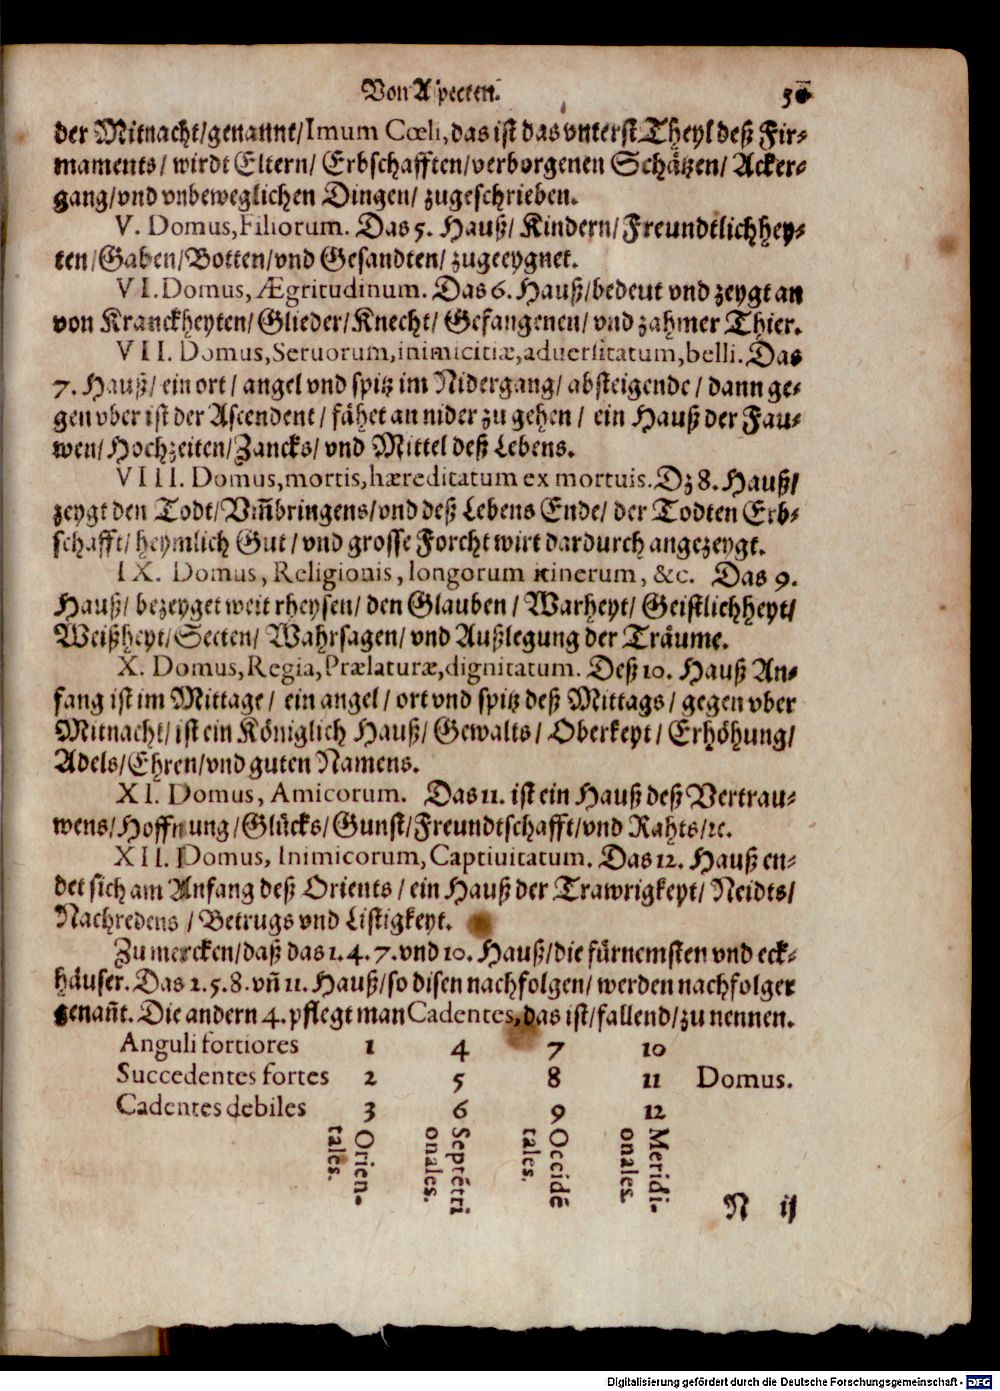 Von Aspecten. 50
der Mitnacht/genannt/Imum Cœli, das ist das vnterst Theyl deß Fir-
maments/ wirdt Eltern/ Erbschafften/verborgenen Schätzen/ Acker-
gang/vnd vnbeweglichen Dingen/ zugeschrieben.
V. Domus, Filiorum. Das 5. Hauß/ Kindern/Freundtlichhey-
ten/Gaben/Botten/vnd Gesandten/ zugeeygnet.
VI. Domus, Ægritudinum. Das 6. Hauß/bedeut vnd zeygt an
von Kranckheyten/Glieder/Knecht/ Gefangenen/ vnd zahmer Thier.
VII. Domus, Seruorum, inimicitiæ, aduersitatum, belli. Das
7. Hauß/ ein ort/ angel vnd spitz im Nidergang/ absteigende/ dann ge-
gen vber ist der Ascendent/ fähet an nider zu gehen/ ein Hauß der Fau-
wen/Hochzeiten/Zancks/ vnd Mittel deß Lebens.
VIII. Domus, mortis, hæreditatum ex mortuis. Dz 8. Hauß/
zeygt den Todt/Vm̃bringens/vnd deß Lebens Ende/ der Todten Erb-
schafft/ heymlich Gut/ vnd grosse Forcht wirt dardurch angezeygt.
IX. Domus, Religionis, longorum itinerum, &c. Das 9.
Hauß/ bezeyget weit rheysen/ den Glauben/ Warheyt/ Geistlichheyt/
Weißheyt/Secten/ Wahrsagen/ vnd Außlegung der Träume.
X. Domus, Regia, Prælaturæ, dignitatum. Deß 10. Hauß An-
fang ist im Mittage/ ein angel/ ort vnd spitz deß Mittags/ gegen vber
Mitnacht/ ist ein Königlich Hauß/ Gewalts/ Oberkeyt/ Erhöhung/
Adels/Ehren/vnd guten Namens.
XI. Domus, Amicorum. Das 11. ist ein Hauß deß Vertrau-
wens/Hoffnung/Glücks/Gunst/Freundtschafft/vnd Rahts/ꝛc.
XII. Domus, Inimicorum, Captiuitatum. Das 12. Hauß en-
det sich am Anfang deß Orients/ ein Hauß der Trawrigkeyt/ Neidts/
Nachredens/ Betrugs vnd Listigkeyt.
Zu mercken/daß das 1. 4. 7. vnd 10. Hauß/die fürnemsten vnd eck-
häuser. Das 2. 5. 8. vñ 11. Hauß/so disen nachfolgen/ werden nachfolger
genañt. Die andern 4. pflegt man Cadentes, das ist/fallend/zu nennen.
Anguli fortiores 1 4 7 10
Succedentes fortes 2 5 8 11 Domus.
Cadentes debiles 3 6 9 12
Orien-
tales.
Septētri
onales.
Occidē
tales.
Meridi-
onales.
N ij
Digitalisierung gefördert durch die Deutsche Forschungsgemeinschaft - DFG